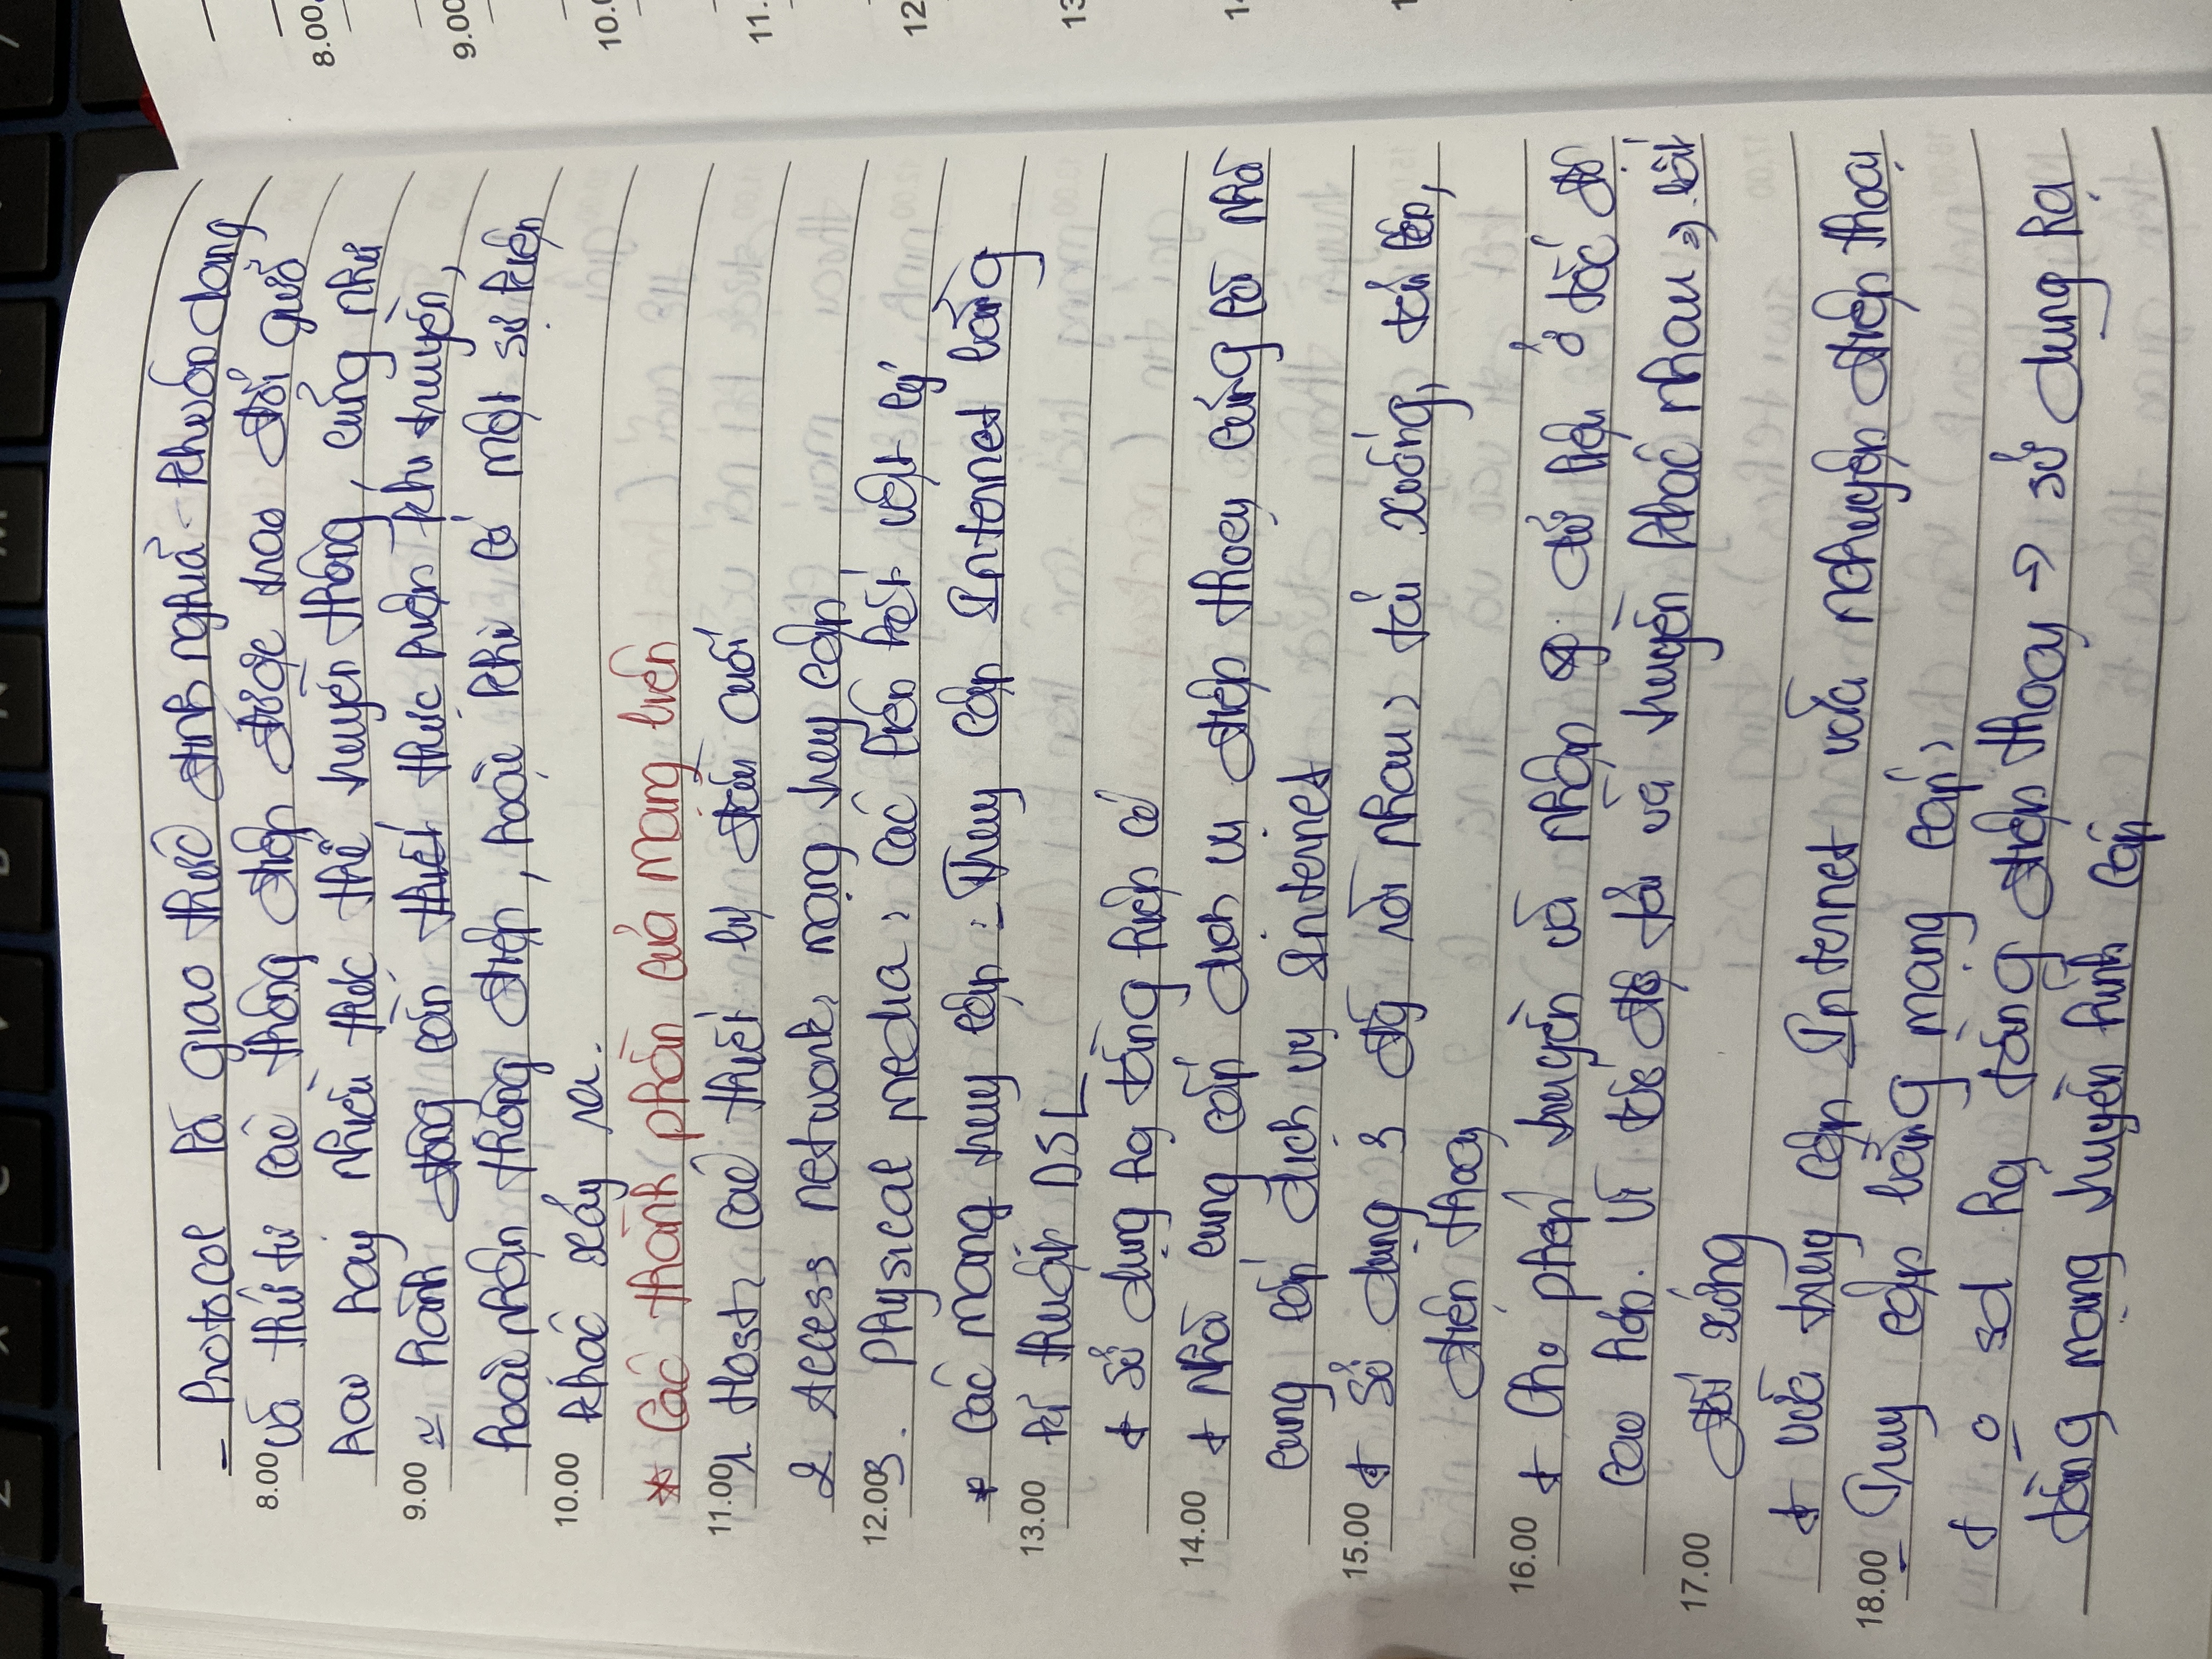 - Protocol là giao thức định nghĩa - khuôn dạng
8.00 và thứ tự các thông điệp được trao đổi giữa
hai hay nhiều thực thể truyền thông, cũng như
9.00 hành động cần thực hiện khi truyền,
hoặc nhận thông điệp, hoặc khi có một sự kiện
10.00 khác xảy ra.
* Các thành phần của mạng biên
11.00 1. Host: các thiết bị đầu cuối
2 Access network: mạng truy cập
12.00 3. Physical media: các liên kết vật lý
* Các mạng truy cập: - Truy cập Internet bằng
13.00 kĩ thuật DSL
+ Sử dụng hạ tầng hiện có
14.00 + Nhà cung cấp dịch vụ điện thoại cũng là nhà
cung cấp dịch vụ Internet
15.00 + Sử dụng 3 dãy rời nhau: tải xuống, tải lên,
điện thoại
16.00 + Cho phép truyền và nhận dữ liệu ở tốc độ
cao hơn. Vì tốc độ tải và truyền khác nhau => bất
17.00 đối xứng
+ vừa truy cập Internet vừa nchuyện điện thoại
18.00 - Truy cập bằng mạng cáp:
+ o sd hạ tầng điện thoại -> sử dụng hạ
tầng mạng truyền hình cáp
8.00
9.00
10.0
11.
12
13
1